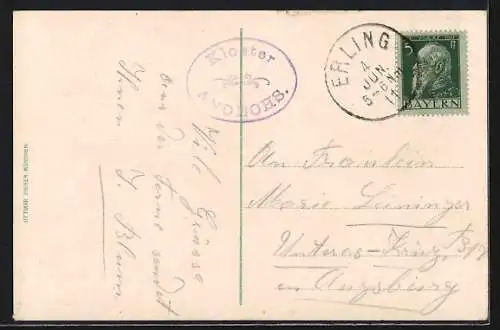 Kloster
ANDECHS.
ERLING
4
JUN
5-6 Nm
11
5 Pf
BAYERN
Viele Grüsse
aus der Ferne sendet
Ihnen
J. Blum
OTTMAR ZIEHER, MÜNCHEN
An Fräulein
Marie Leininger
Unteres Kreuz
in Augsburg